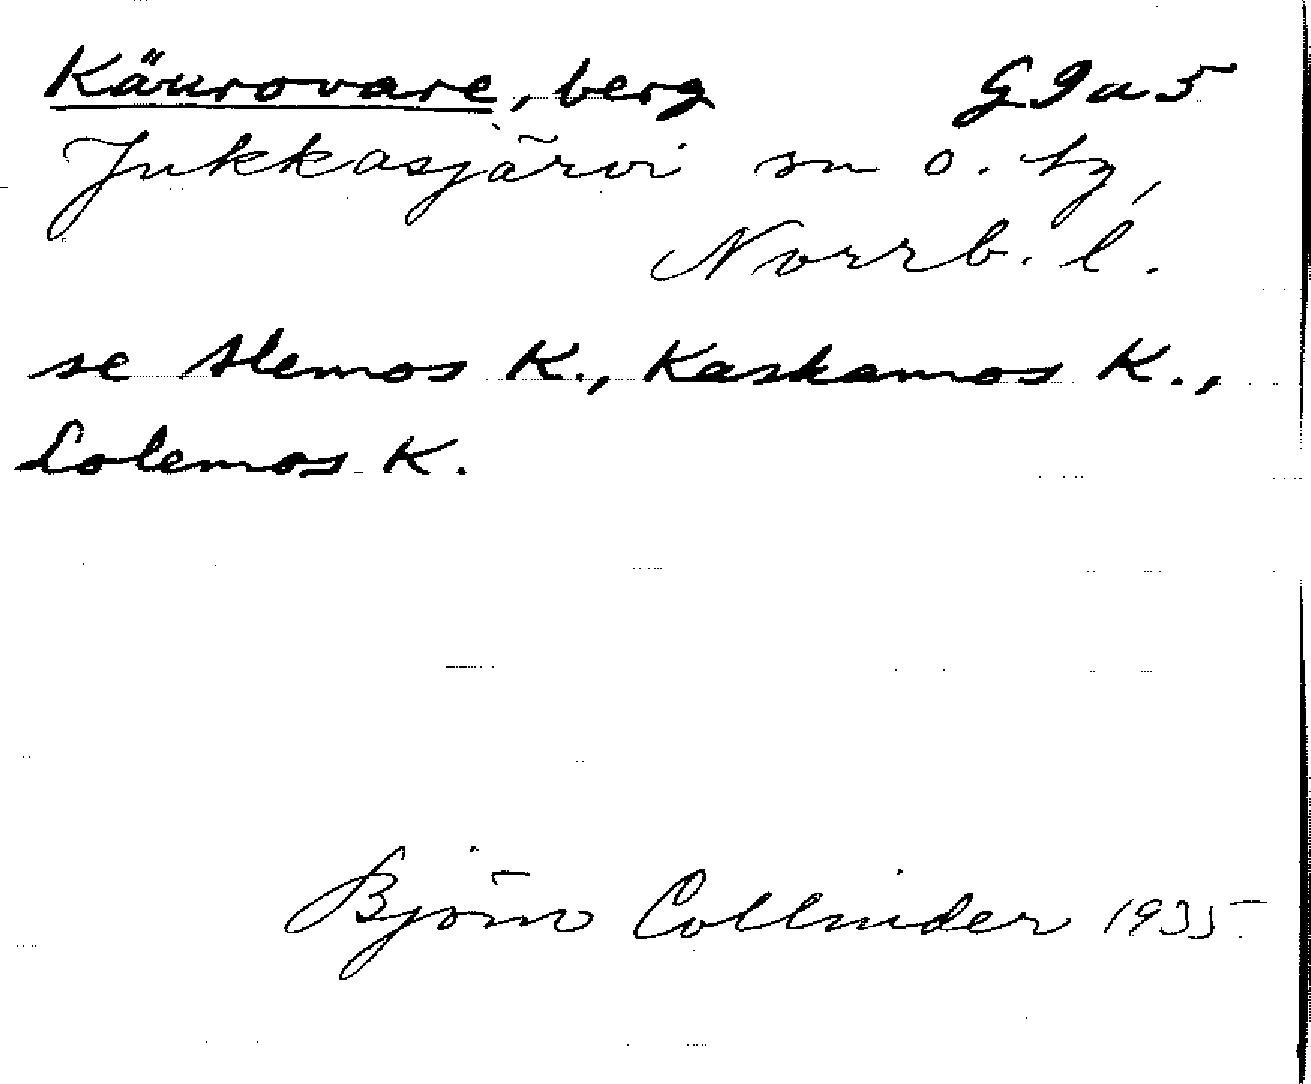 Käurovare, berg G9a5
Jukkasjärvi sn o. tg,
Norrb. l.
se Alemos K., Kaskamos K.,
Lolemos K.
Björn Collinder 1935